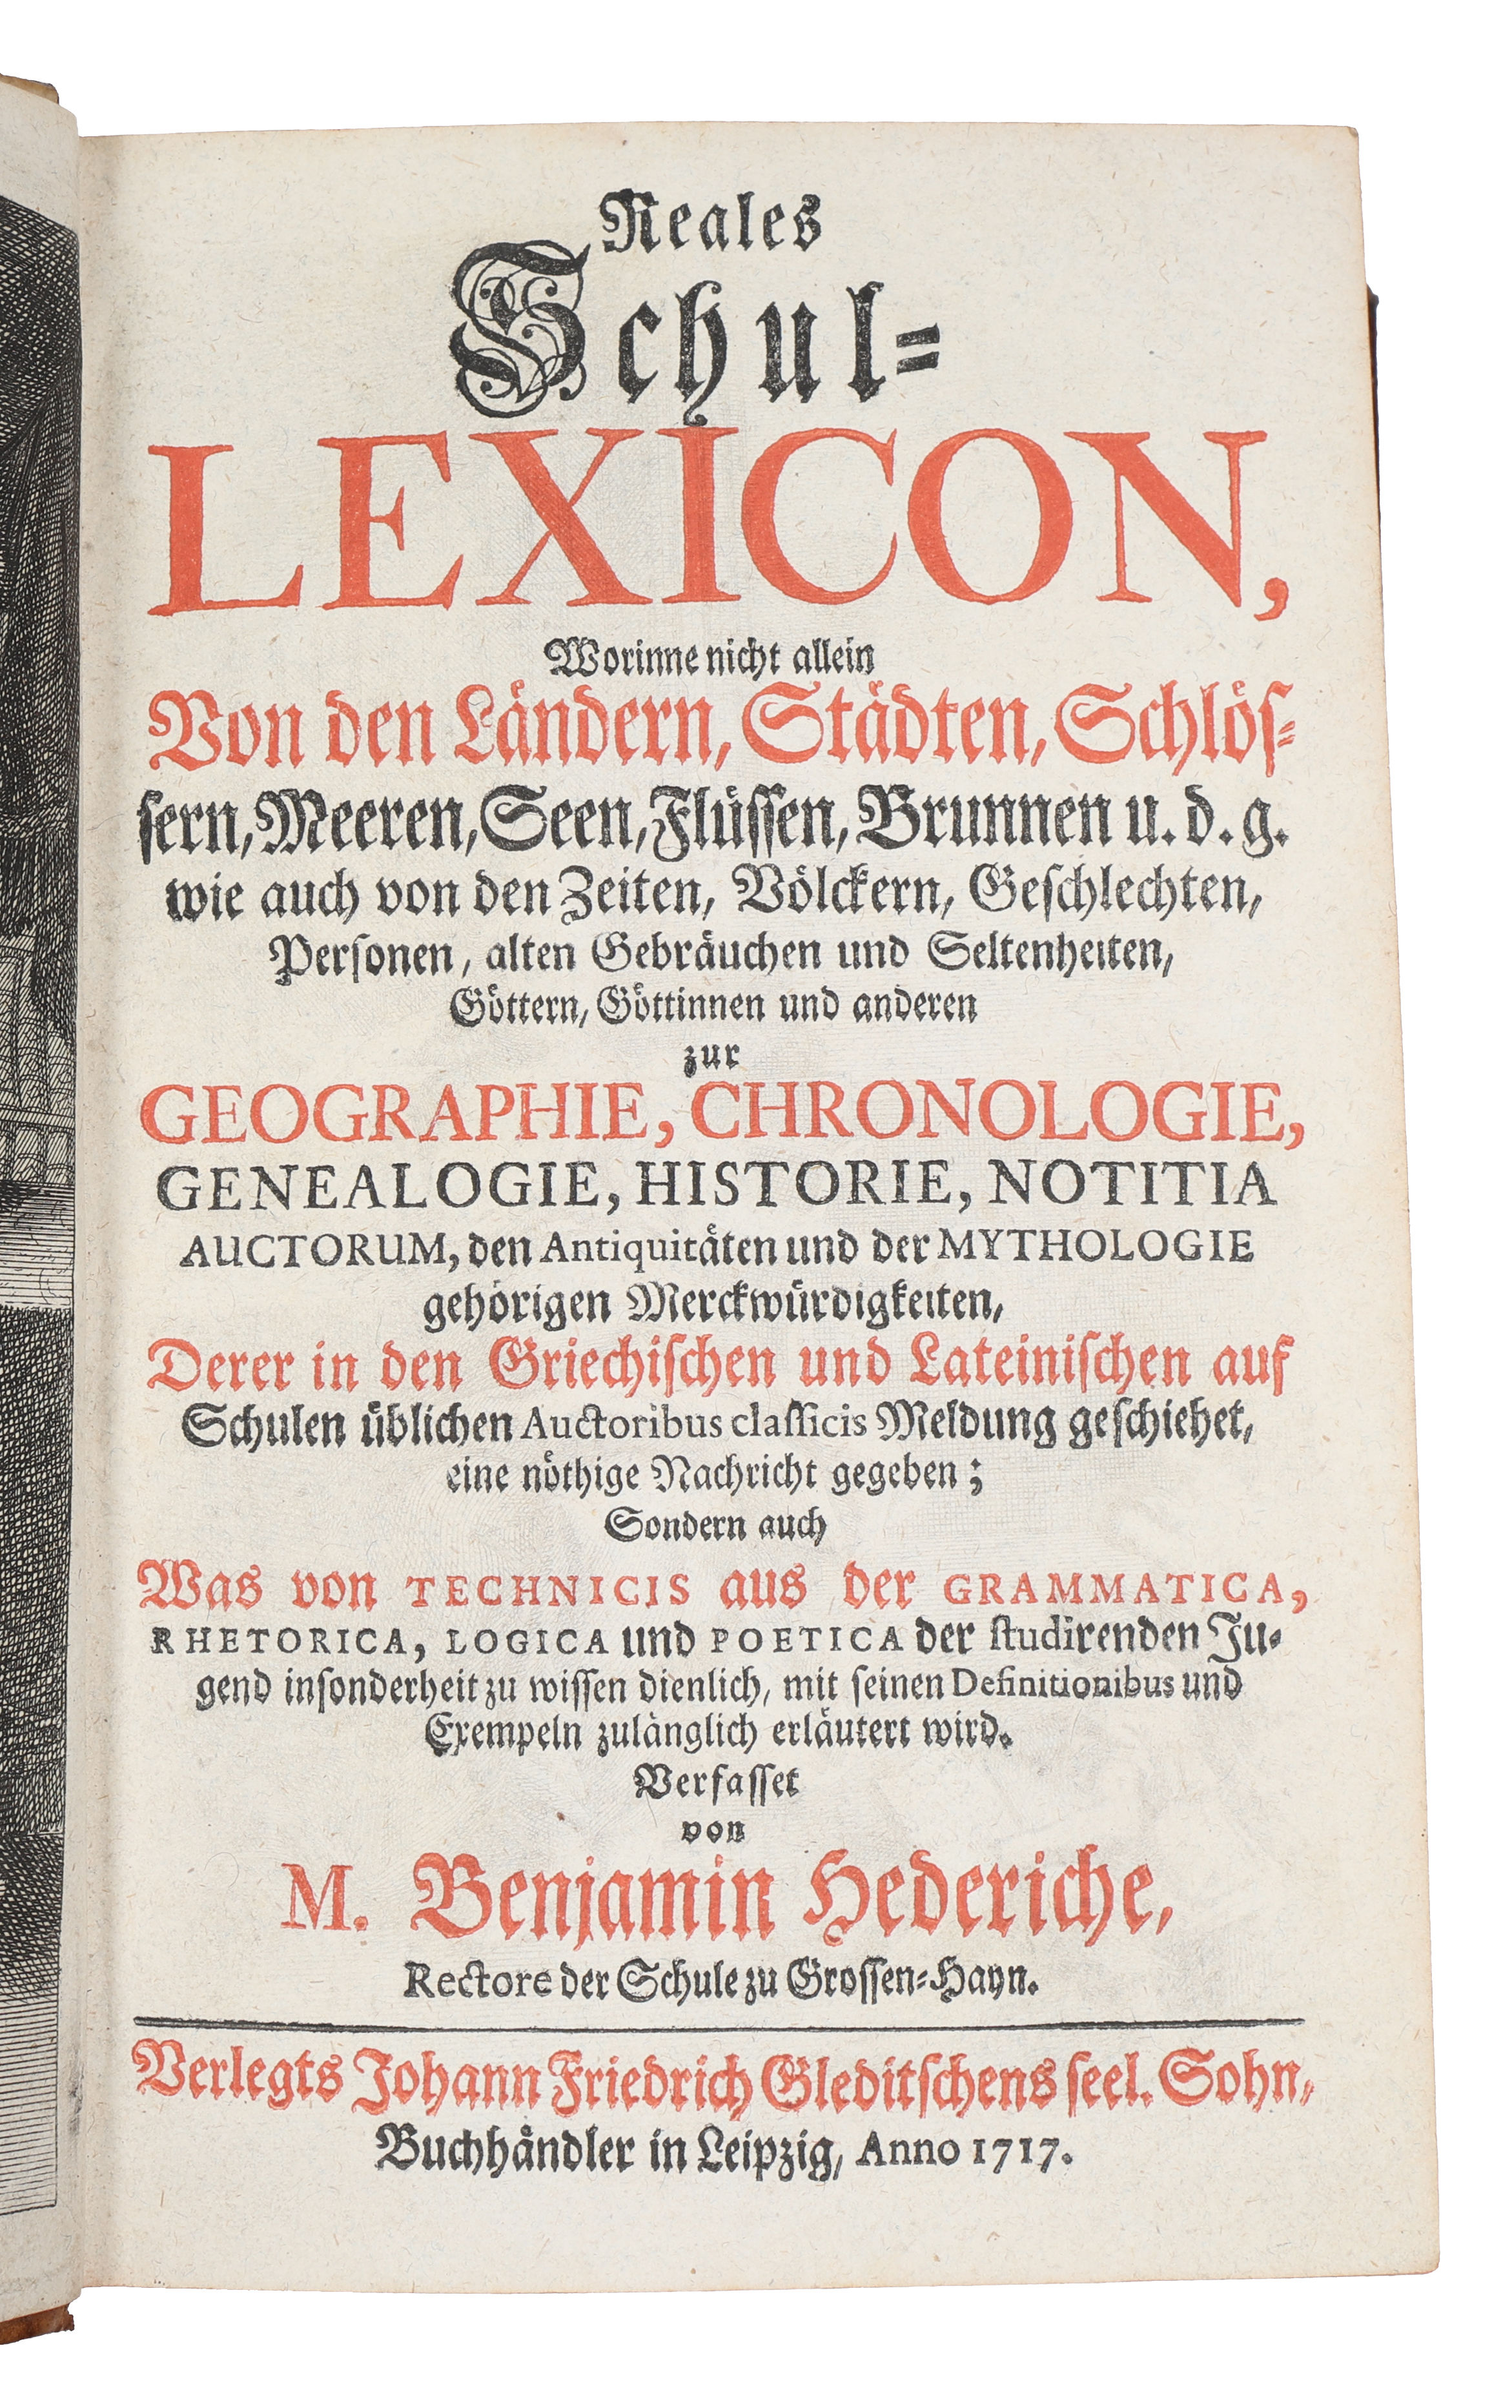 Reales
Schul-
LEXICON,
Worinne nicht allein
Von den Ländern, Städten, Schlös-
sern, Meeren, Seen, Flüssen, Brunnen u. d. g.
wie auch von den Zeiten, Völckern, Geschlechten,
Personen, alten Gebräuchen und Seltenheiten,
Göttern, Göttinnen und anderen
zur
GEOGRAPHIE, CHRONOLOGIE,
GENEALOGIE, HISTORIE, NOTITIA
AUCTORUM, den Antiquitäten und der MYTHOLOGIE
gehörigen Merckwürdigkeiten,
Derer in den Griechischen und Lateinischen auf
Schulen üblichen Auctoribus classicis Meldung geschiehet,
eine nöthige Nachricht gegeben;
Sondern auch
Was von TECHNICIS aus der GRAMMATICA,
RHETORICA, LOGICA und POETICA der studirenden Ju-
gend insonderheit zu wissen dienlich, mit seinen Definitionibus und
Exempeln zulänglich erläutert wird.
Verfasset
von
M. Benjamin Hederiche,
Rectore der Schule zu Grossen-Hayn.
Verlegts Johann Friedrich Gleditschens seel. Sohn,
Buchhändler in Leipzig, Anno 1717.